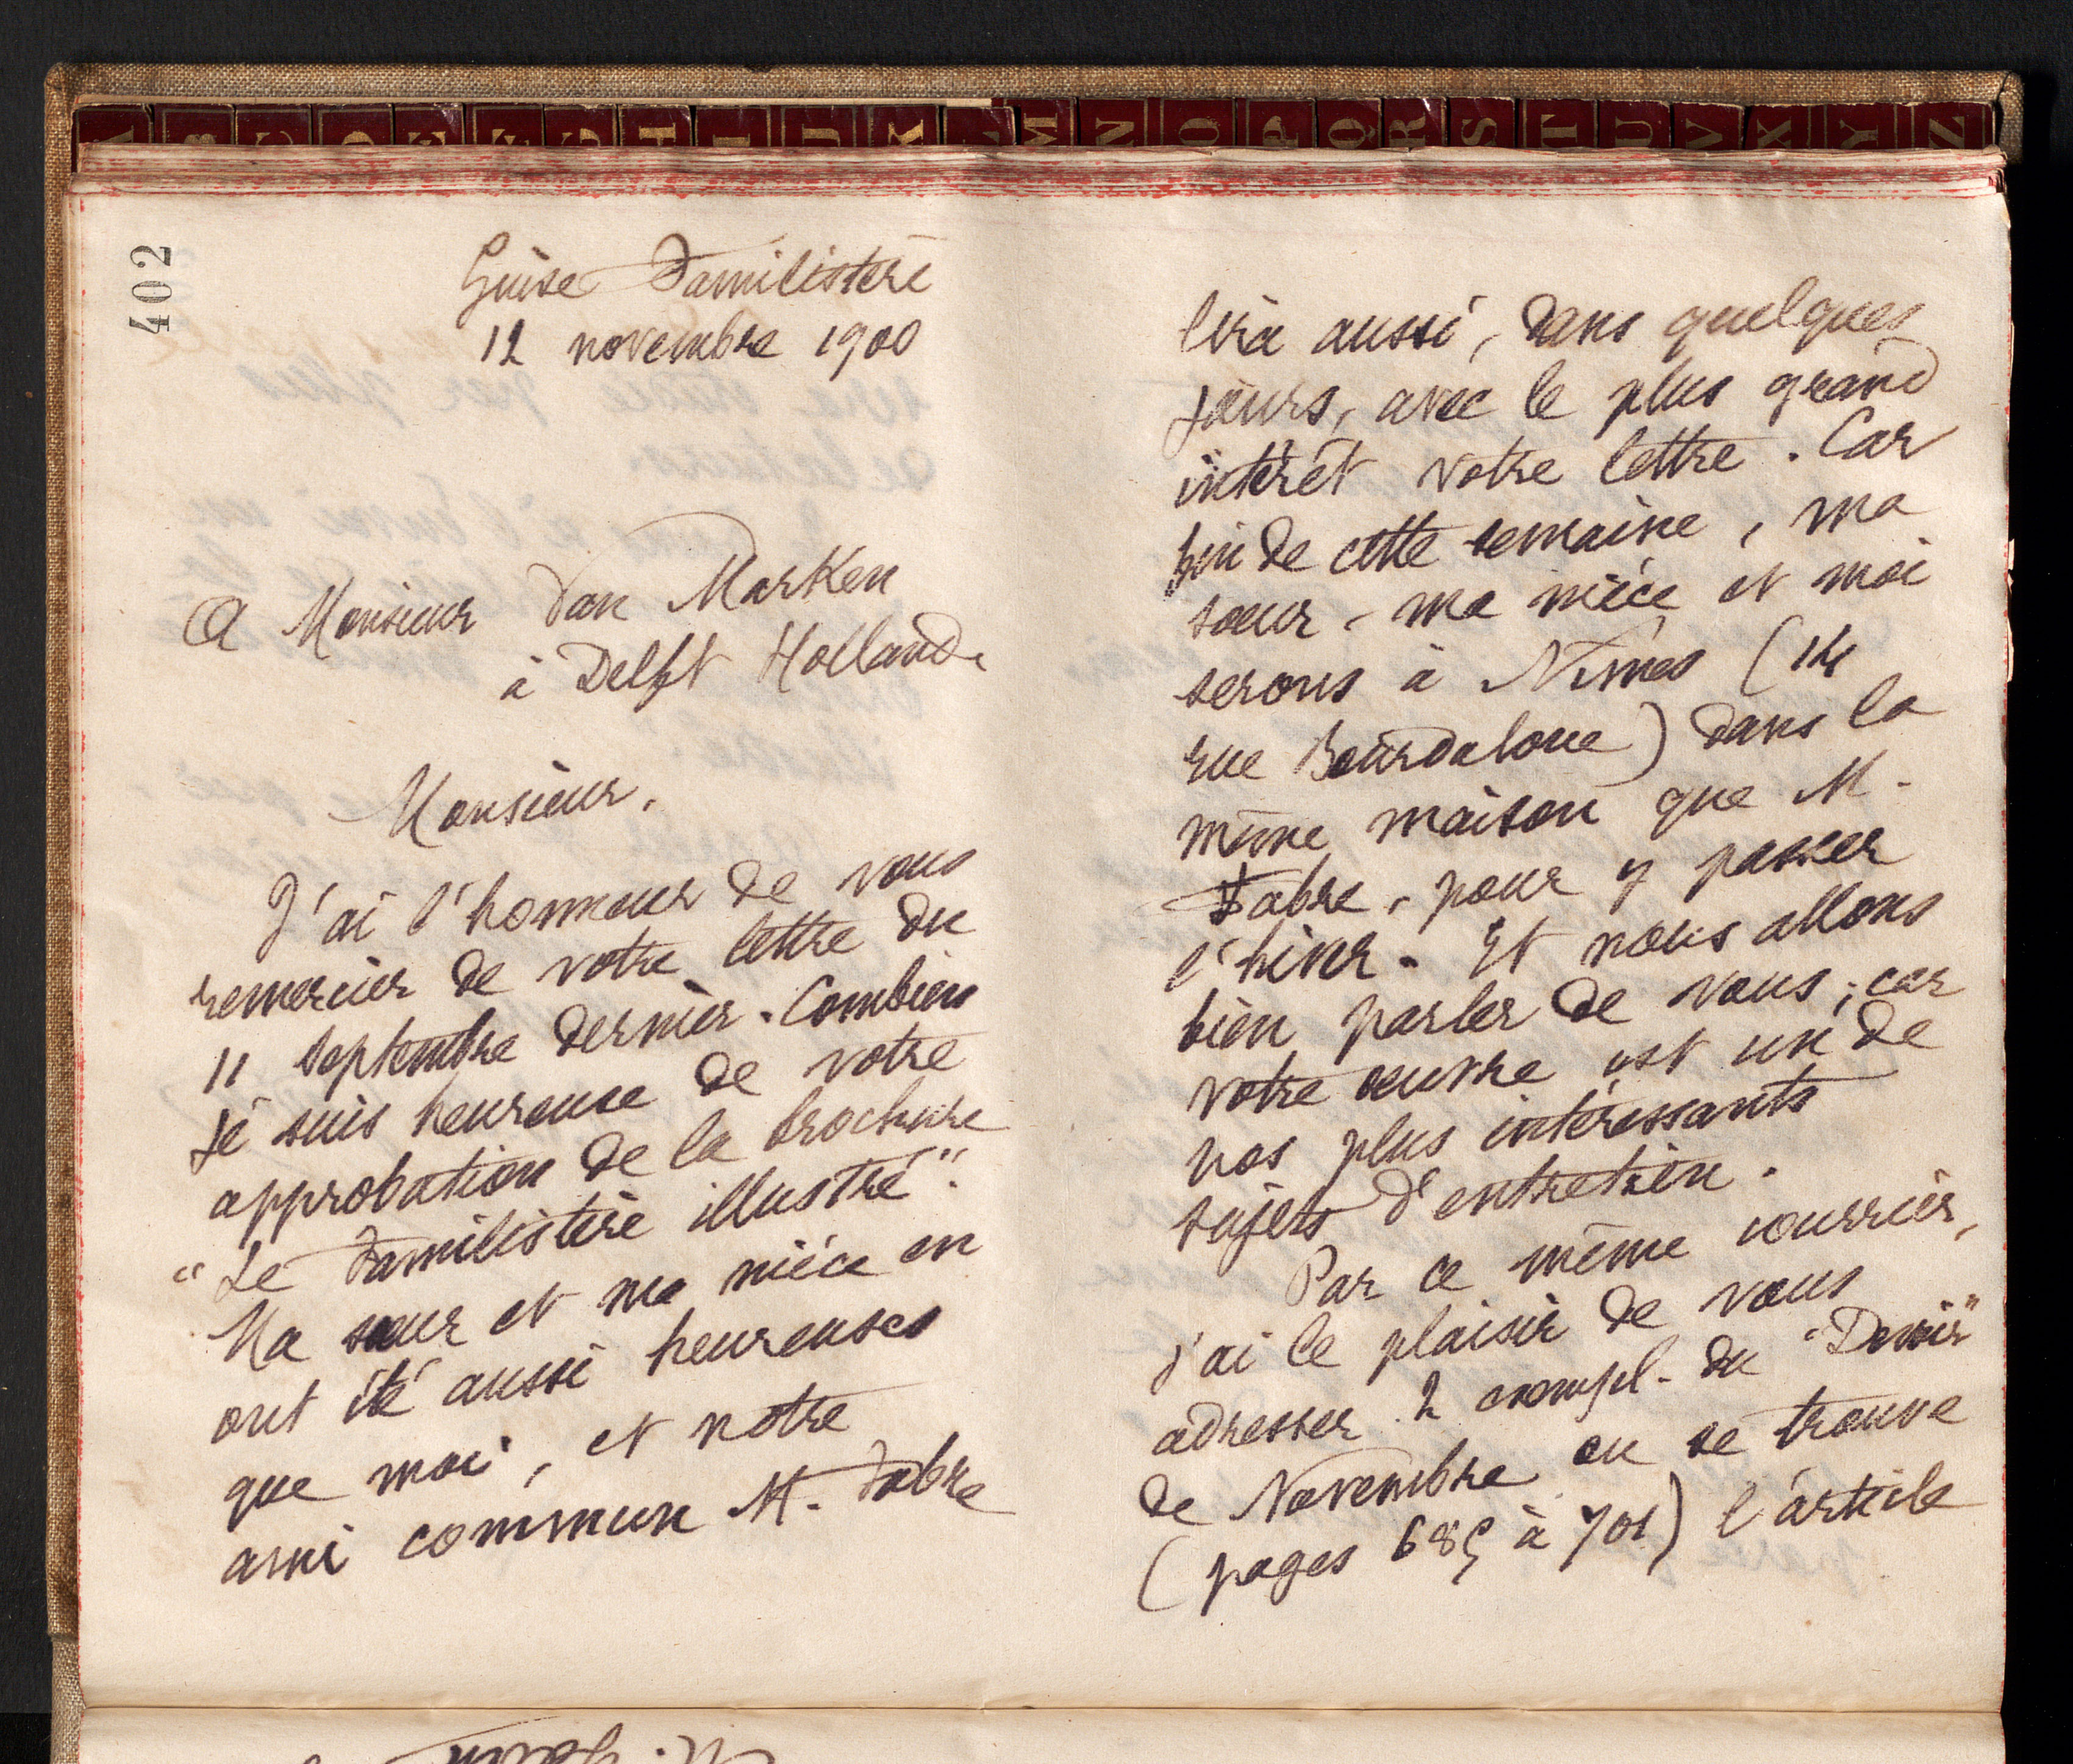 A B C D E F G H I J K L M N O P Q R S T U V X Y Z
402
Guise Familistère
12 novembre 1900
A Monsieur Van Marken
à Delft Hollande
Monsieur,
J'ai l'honneur de vous
remercier de votre lettre du
11 septembre dernier. Combien
je suis heureuse de votre
approbation de la brochure
"Le Familistère illustré".
Ma sœur et ma nièce en
ont été aussi heureuses
que moi, et notre
ami commun M. Fabre
lira aussi, dans quelques
jours, avec le plus grand
intérêt votre lettre. Car
fin de cette semaine, ma
sœur, ma nièce et moi
serons à Nîmes (14
rue Bourdaloue) dans la
même maison que M.
Fabre, pour y passer
l'hiver. Et nous allons
bien parler de vous; car
votre œuvre est un de
nos plus intéressants
sujets d'entretien.
Par ce même courrier,
j'ai le plaisir de vous
adresser 2 exempl. du "Devoir"
de Novembre ou se trouve
(pages 685 à 701) l'article